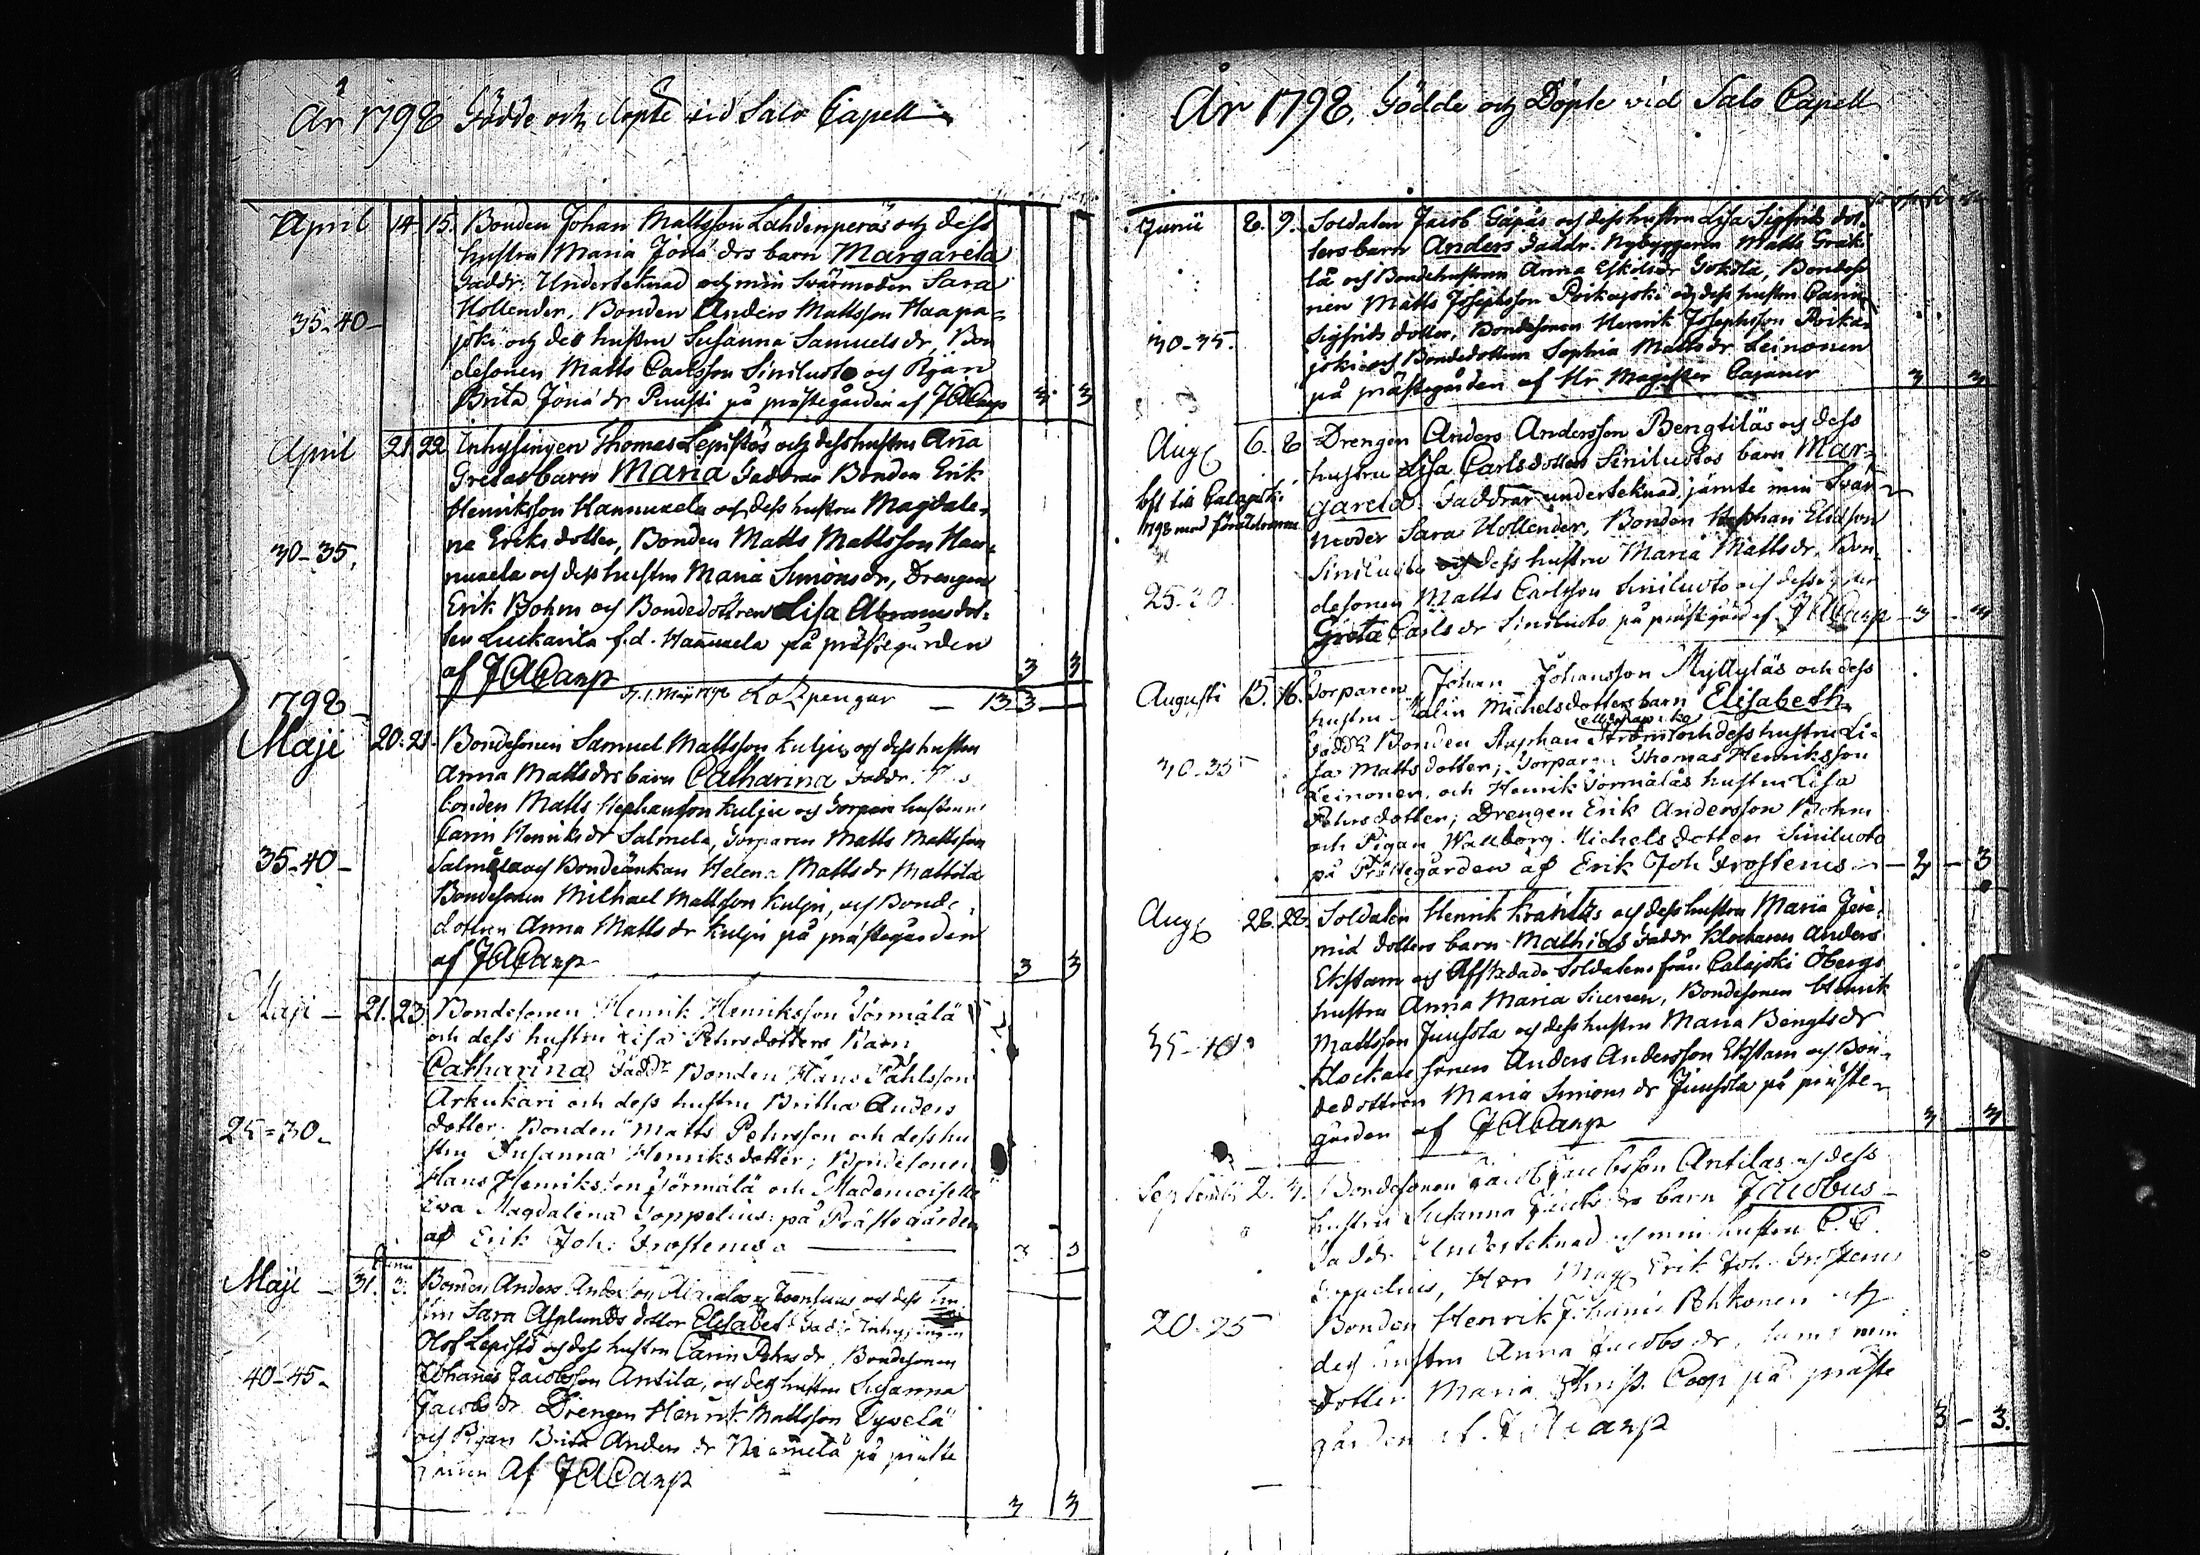 År 1798 Födde och döpte vid Salo Capell
April 14. 15. Bonden Johan Mattsson Lahdenperäs och dess
hustru Maria Jona drs barn Margareta
Faddr: Underteknad och min Svärmoder Sara
Hollender, Bonden Anders Mattsson Haapa=
35-40- joki och des hustru Susanna Samuels dr, Bon
desonen Matts Carlsson Siniluoto och Pigan
Brita Jona dr Puusti på prästegården af JACarp 3 3
April 21. 22 Inhysingen Thomas Lepistös och dess hustru Ana
Gretas barn Maria Faddrar Bonden Erik
Henriksson Hannuxela och dess hustru Magdale-
30-35. na Eriks dotter, Bonden Matts Mattsson Han-
nuxela och dess hustru Maria Simons dr, Drengen
Erik Bohm och Bondedottren Lisa Abrams dot-
ter Luckarila f.d. Hannuxela på prästegården
af JACarp 3 3
1798 d. 1. Maji 1798 Kolpengar — 13 3 —
Maji 20. 21. Bondesonen Samuel Mattsson Kuljus och dess hustru
Anna Matts drs barn Catharina Faddr:
bonden Matts Stephansson Kulju och Torpare hustrun
Carin Henriks dr Salmela, Torparen Matts Mattsson
35-40- Salmela och Bondeänkan Helena Matts dr Mattila
Bondesonen Michael Mattsson Kulju, och Bonde-
dottren Anna Matts dr Kulju på prästegården
af JACarp 3 3
Maji — 21. 23. Bondesonen Henrik Henriksson Törmälä
och dess hustru Lisa Pehrsdotters Barn
Catharina Faddr Bonden Hans Påhlsson
Arkukari och dess hustru Britha Anders
25-30- dotter. Bonden Matts Pehrsson och dess hu
stru Susanna Henriksdotter; Bondesonen
Hans Henriksson Törmälä och Mademoiselle
Eva Magdalena Toppelius: på Prästegården
af Erik Joh: Frosterus. 3 3
Maji — 31. Junii 3. Bonden Anders Andersson och dess hu
stru Sara Asplunds dotter Elisabet Faddr Inhysingen
Olof Lepistö och dess hustru Carin Pehrs dr, Bondesonen
40-45- Johannes Jacobsson Antila, och dess hustru Susanna
Jacobs dr Drengen Henrik Mattsson Tyvelä
och Pigan Brita Anders dr Niemelä på präste
gården Af JACarp 3 3
År 1798. Födde och Döpte vid Salo Capell
Junii 8. 9. Soldaten Jacob Gåpås och dess hustru Lisa Sigfrids dot-
ters barn Anders Faddr. Nybyggaren Matts
och Bondehustrun Anna Eskilsdr, Bondeso
nen Matts Josephsson Poikajoki och dess hustru Carin
30-35. Sigfrids dotter, Bondesonen Henrik Josephsson Poika-
joki och Bondedottren Sophia Matts dr Leinonen
på prästegården af Hr Magister Cajaner 3 3
Aug 6. 8 Drengen Anders Andersson Bengtiläs och dess
hustru Lisa Carlsdotter Siniluotos barn Mar-
gareta. Faddrar undertecknad jämte min Svär-
1798 med föräldrarne moder Sara Hollender, Bonden Stephan
Siniluoto och dess hustru Maria Matts dr. Bon-
25-30 desonen Matts Carlsson Siniluoto och dess syster
Greta Carls dr Siniluoto på prästegård af JACarp - 3 - 3
Augusti 15. 16. Torparen Johan Johansson Myllyläs och dess
hustru Malin Michelsdotters barn Elisabeth.
Faddr Bonden Staphan Ström och dess hustru Li-
30-35 sa Mattsdotter; Torparen Thomas Henriksson
Leinonen, och Henrik Törmäläs hustru Lisa
Pehrsdotter; Drengen Erik Andersson Bohm
och Pigan Wallborg Michelsdotter Siniluoto
på Prästegården af Erik Joh Frosterus - 3 - 3
Aug 26. 28. Soldaten Henrik Krantz's och dess hustru Maria Jere-
mia dotters barn Mathias Faddr Klockaren Anders
Ekstam och Afskedade Soldatens från Calajoki Öbergs
hustru Anna Maria, Bondesonen Henrik
35-40 Mattsson Juusola och dess hustru Maria Bengts dr
Klockare sonen Anders Andersson Ekstam och Bon-
dedottren Maria Simons dr Juusola på präste-
gården af JACarp 3 3
September 2. 3. Bondesonen Jacob Jacobsson Antilas och dess
hustru Susanna Jacobs drs barn Jacobus
Faddr Undertecknad och min hustru C.C.
Toppelius, Herr Mag Erik Joh. Frosterus
20-25 Bonden Henrik Johans Pehkonen och
dess hustru Anna Jacobs dr, samt min
dotter Maria på präste
gården af JACarp 3 - 3.